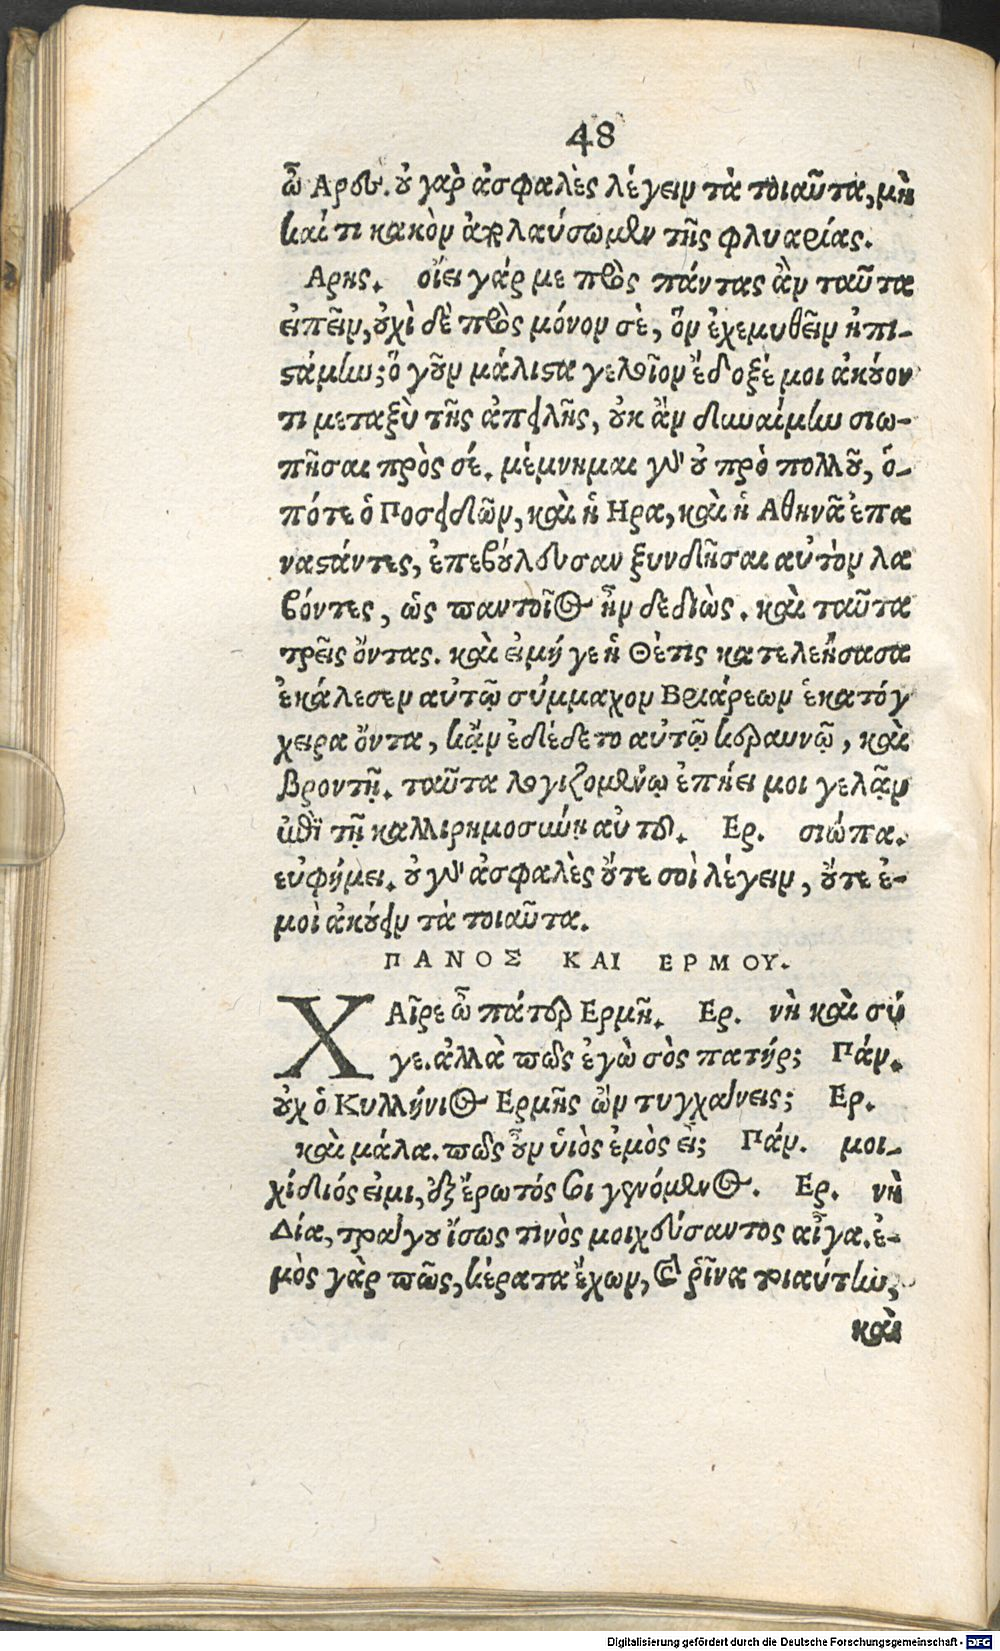 48
ὦ Αρες. οὐ γὰρ ἀσφαλὲς λέγειν τὰ τοιαῦτα, μὴ
καί τι κακὸν ἀπολαύσωμεν τῆς φλυαρίας.
Αρης. οἴει γάρ με πρὸς πάντας ἂν ταῦτα
εἰπεῖν, οὐχὶ δὲ πρὸς μόνον σὲ, ὃν ἐχεμυθεῖν ἠπι-
στάμην; ὃ γοῦν μάλιστα γελοῖον ἔδοξέ μοι ἀκούον
τι μεταξὺ τῆς ἀπειλῆς, οὐκ ἂν δυναίμην σιω-
πῆσαι πρὸς σέ. μέμνημαι γὰρ οὐ πρὸ πολλοῦ, ὁ-
πότε ὁ Ποσειδῶν, καὶ ἡ Ηρα, καὶ ἡ Αθηνᾶ ἐπα
ναστάντες, ἐπεβούλευσαν ξυνδῆσαι αὐτὸν λα
βόντες, ὡς παντοῖος ἦν δεδιὼς. καὶ ταῦτα
τρεῖς ὄντας. καὶ εἰ μή γε ἡ Θέτις κατελεήσασα
ἐκάλεσεν αὐτῷ σύμμαχον Βριάρεων ἑκατόγ
χειρα ὄντα, κᾂν ἐδέδετο αὐτῷ κεραυνῷ, καὶ
βροντῇ. ταῦτα λογιζομένῳ ἐπῄει μοι γελᾷν
ἐπὶ τῇ καλλιρημοσύνῃ αὐτοῦ. Ερ. σιώπα.
εὐφήμει. οὐ γὰρ ἀσφαλὲς οὔτε σοὶ λέγειν, οὔτε ἐ-
μοὶ ἀκούειν τὰ τοιαῦτα.
ΠΑΝΟΣ ΚΑΙ ΕΡΜΟΥ.
ΧΑῖρε ὦ πάτερ Ερμῆ. Ερ. νὴ καὶ σύ
γε. ἀλλὰ πῶς ἐγὼ σὸς πατήρ; Πάν.
οὐχ ὁ Κυλλήνιος Ερμῆς ὢν τυγχάνεις; Ερ.
καὶ μάλα. πῶς οὖν υἱὸς ἐμὸς εἶ; Πάν. μοι-
χίδιός εἰμι, ἐξ ἔρωτός σοι γενόμενος. Ερ. νὴ
Δία, τράγου ἴσως τινὸς μοιχεύσαντος αἶγα. ἐ-
μὸς γὰρ πῶς, κέρατα ἔχων, καὶ ῥῖνα τοιαύτην,
καὶ
Digitalisierung gefördert durch die Deutsche Forschungsgemeinschaft - DFG